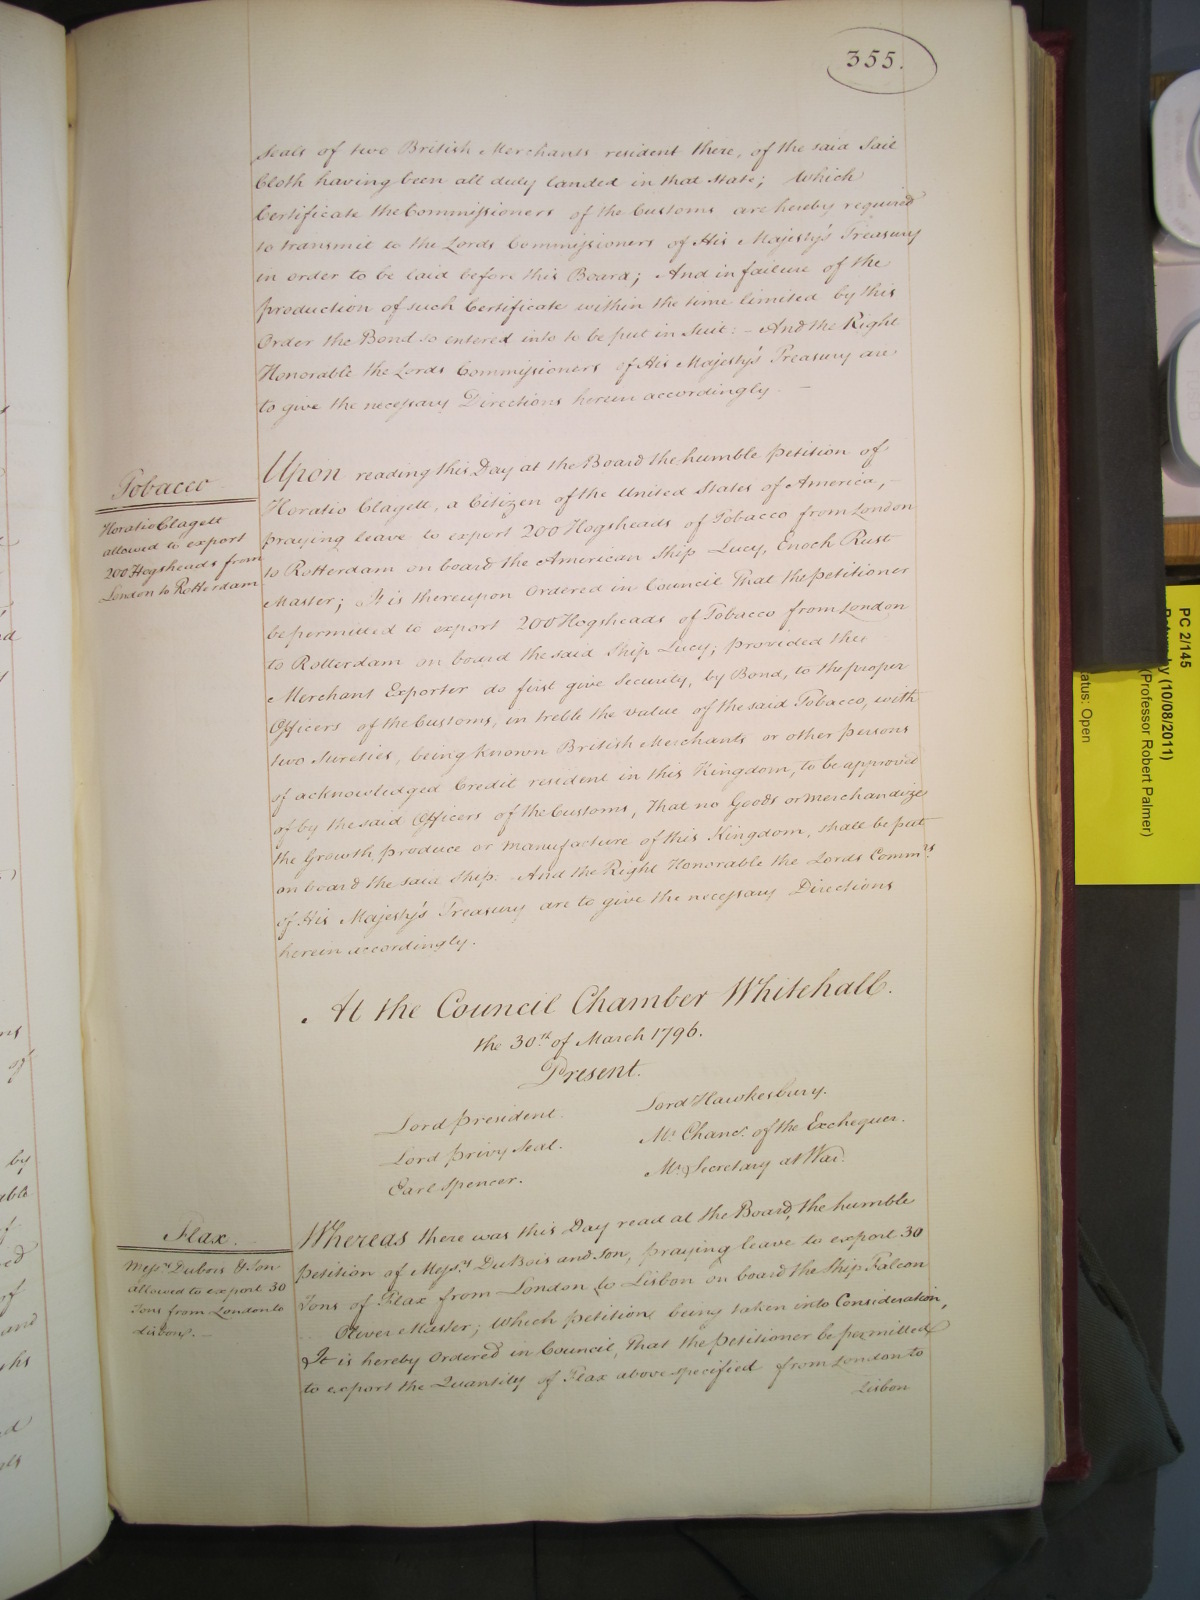 355.
Seals of two British Merchants resident there, of the said Sail
Cloth having been all duly landed in that State; Which
Certificate the Commissioners of the Customs are hereby required
to transmit to the Lords Commissioners of His Majesty's Treasury
in order to be laid before this Board; And in failure of the
production of such Certificate within the time limited by this
Order the Bond so entered into to be put in Suit: – And the Right
Honorable the Lords Commissioners of His Majesty's Treasury are
to give the necessary Directions herein accordingly. –
Tobacco
Horatio Clagett
allowed to export
200 Hogsheads from
London to Rotterdam
Upon reading this Day at the Board the humble Petition of
Horatio Clagett, a Citizen of the United States of America, –
praying leave to export 200 Hogsheads of Tobacco from London
to Rotterdam on board the American Ship Lucy, Enoch Rust
Master; It is thereupon Ordered in Council That the Petitioner
be permitted to export 200 Hogsheads of Tobacco from London
to Rotterdam on board the said Ship Lucy; provided the
Merchant Exporter do first give Security, by Bond, to the proper
Officers of the Customs, in treble the value of the said Tobacco, with
two Sureties, being known British Merchants or other persons
of acknowledged Credit resident in this Kingdom, to be approved
of by the said Officers of the Customs, That no Goods or Merchandize
the Growth, produce or Manufacture of this Kingdom, shall be put
on board the said Ship. And the Right Honorable the Lords Comm.rs
of His Majesty's Treasury are to give the necessary Directions
herein accordingly.
At the Council Chamber Whitehall.
the 30.th of March 1796.
Present.
Lord President.
Lord Privy Seal.
Earl Spencer.
Lord Hawkesbury.
Mr. Chanc.r of the Exchequer.
Mr. Secretary at War.
Flax.
Mess.rs Dubois & Son
allowed to export 30
Tons from London to
Lisbon. –
Whereas there was this Day read at the Board, the humble
Petition of Mess.rs DuBois and Son, praying leave to export 30
Tons of Flax from London to Lisbon on board the Ship Falcon
Oliver Master; Which Petition being taken into Consideration,
It is hereby Ordered in Council, That the Petitioner be permitted
to export the Quantity of Flax above specified from London to
Lisbon
PC 2/145
(10/08/2011)
(Professor Robert Palmer)
atus: Open